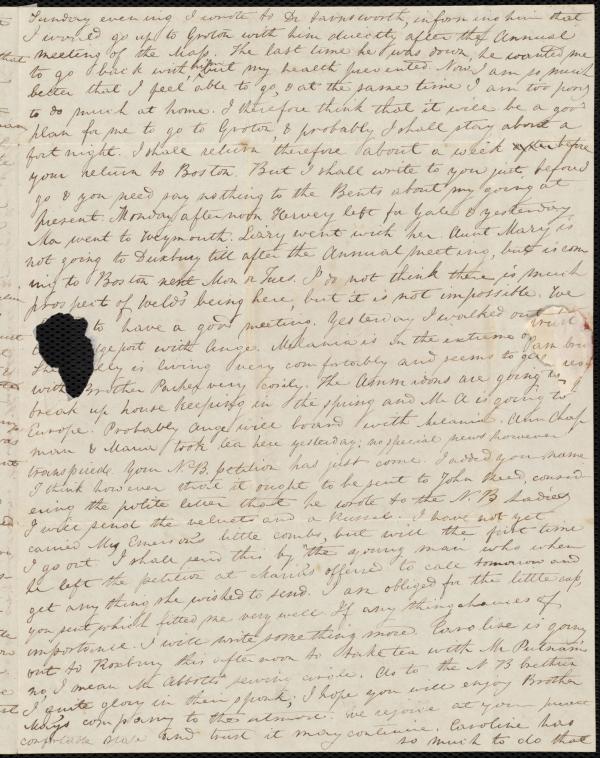 Sunday evening I wrote to Dr Farnsworth, informing him that
I would go up to Groton with him directly after the Annual
meeting of the Mass. The last time he was down, he wanted me
to go back with him, but my health prevented. Now I am so much
better that I feel able to go, & at the same time I am too poorly
to do much at home. I therefore think that it will be a good
plan for me to go to Groton, & probably I shall stay about a
fortnight. I shall return therefore about a week before
your return to Boston. But I shall write to you just before I
go & you need say nothing to the Bents about my going at
present. Monday afternoon Hervey left for Yale & yesterday
Ma went to Weymouth. Lizzy went with her. Aunt Mary is
not going to Duxbury till after the Annual meeting, but is com
ing to Boston next Mon or Tues. I do not think there is much
prospect of Weld's being here, but it is not impossible. We
trust
to have a good meeting. Yesterday I walked out
port with Ange. Melania is in the extreme of
She is living very comfortably and seems to get
with Brother Parker very cosily. The Ammidons are going to
break up house keeping in the spring and Mr A is going to
Europe. Probably Ange will board with Melania. Ann Chap
man & Maria took tea here yesterday; no special news however
transpired. Your N.B. petition has just come. I added your name
I think however that it ought to be sent to John Reed, consid
ering the polite letter that he wrote to the N B Ladies
I will send the velvets and a Russell. I have not yet
carried Mrs Emerson's little combs, but will the first time
I go out. I shall send this by the young man who when
he left the petition at Maria's offered to call tomorrow and
get any thing she wished to send. I am obliged for the little cap
you sent, which fitted me very well. If any thing chances of
importance I will write something more. Caroline is going
out to Roxbury this afternoon to take tea with Mr Putnam's
no, I mean Mr Abbott's sewing circle. As to the N B brethren
I quite glory in their spunk; I hope you will enjoy Brother
May's company to the utmost. We rejoice at your present
comfortable state and trust it may continue. Caroline has
so much to do that